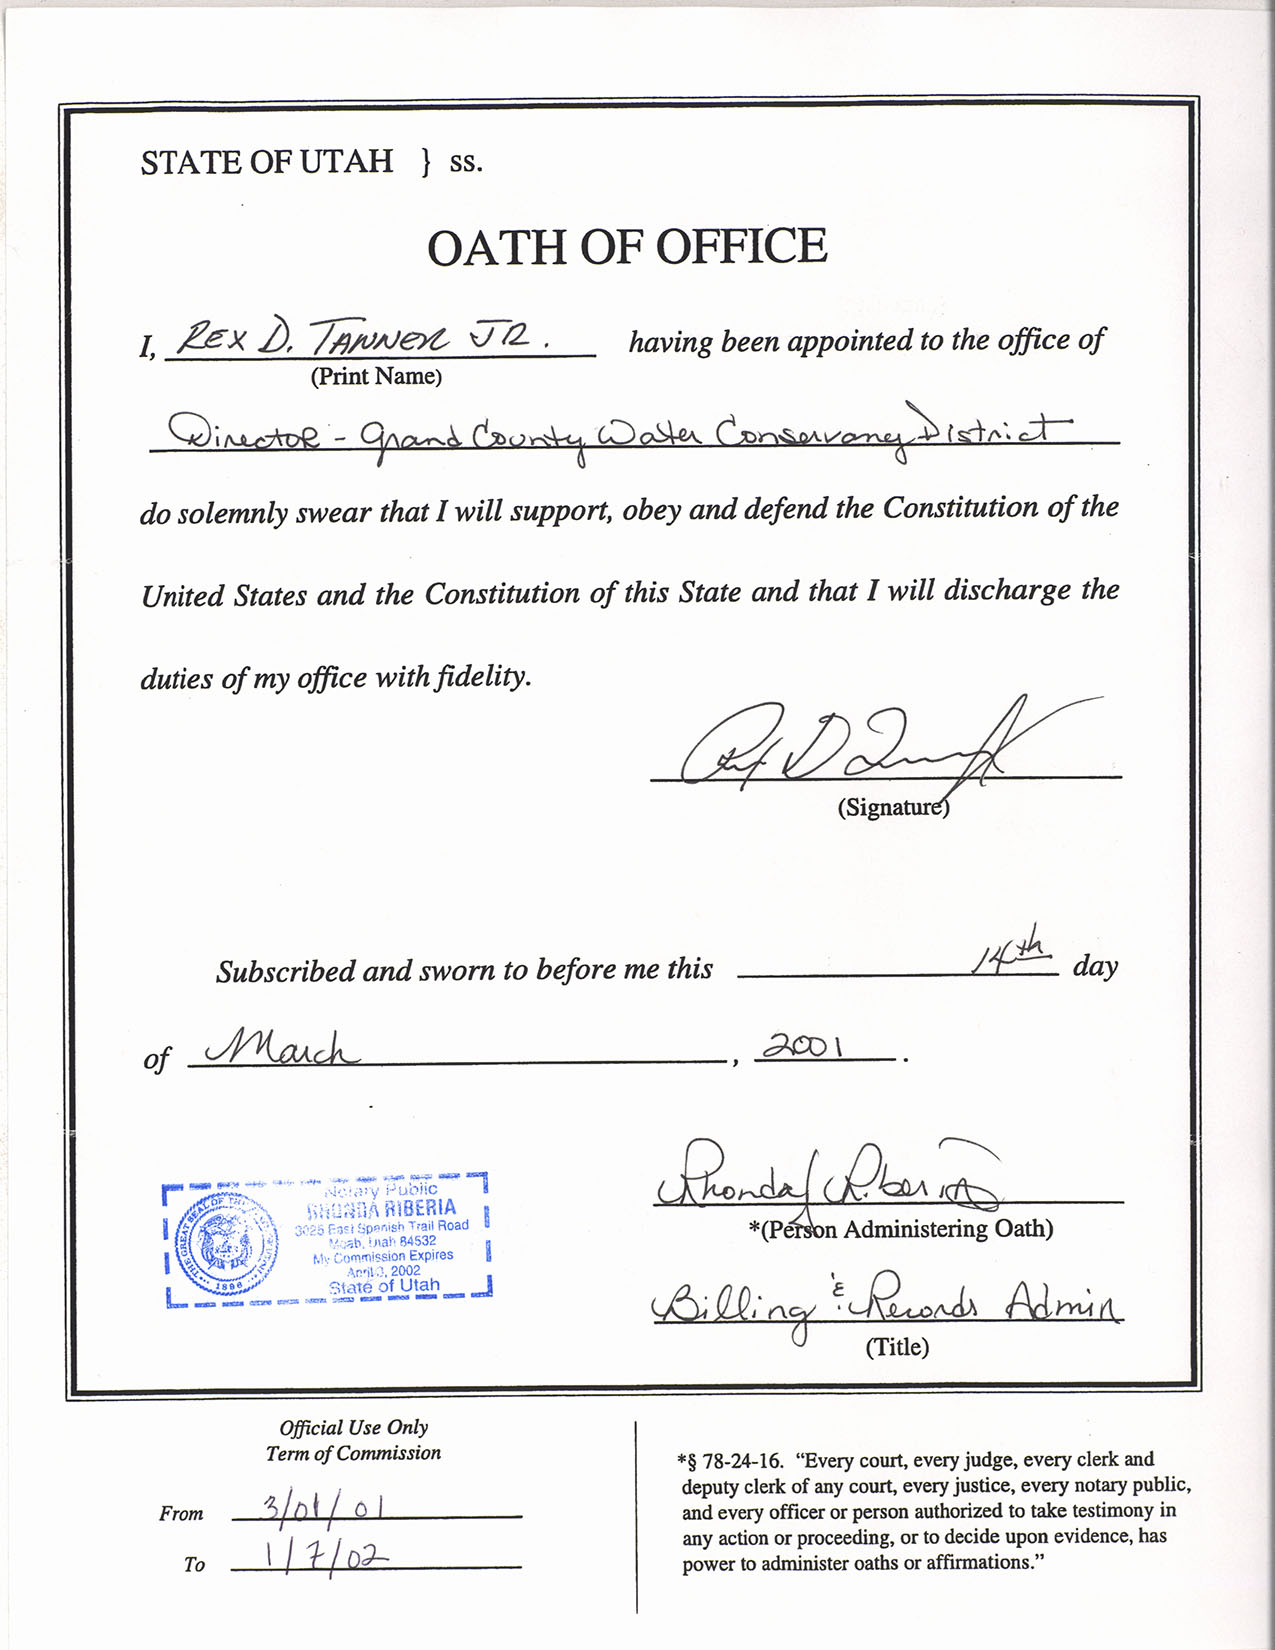 STATE OF UTAH } ss.
OATH OF OFFICE
I, REX D. TANNER JR. having been appointed to the office of
(Print Name)
Director - Grand County Water Conservancy District
do solemnly swear that I will support, obey and defend the Constitution of the
United States and the Constitution of this State and that I will discharge the
duties of my office with fidelity.
Rex D Tanner Jr
(Signature)
Subscribed and sworn to before me this 14th day
of March, 2001.
Rhonda Riberia
*(Person Administering Oath)
Billing & Records Admin
(Title)
Notary Public
RHONDA RIBERIA
3025 East Spanish Trail Road
Moab, Utah 84532
My Commission Expires
April 3, 2002
State of Utah
THE GREAT SEAL OF THE STATE OF UTAH
1896
Official Use Only
Term of Commission
From 3/01/01
To 1/7/02
*§ 78-24-16. “Every court, every judge, every clerk and
deputy clerk of any court, every justice, every notary public,
and every officer or person authorized to take testimony in
any action or proceeding, or to decide upon evidence, has
power to administer oaths or affirmations.”